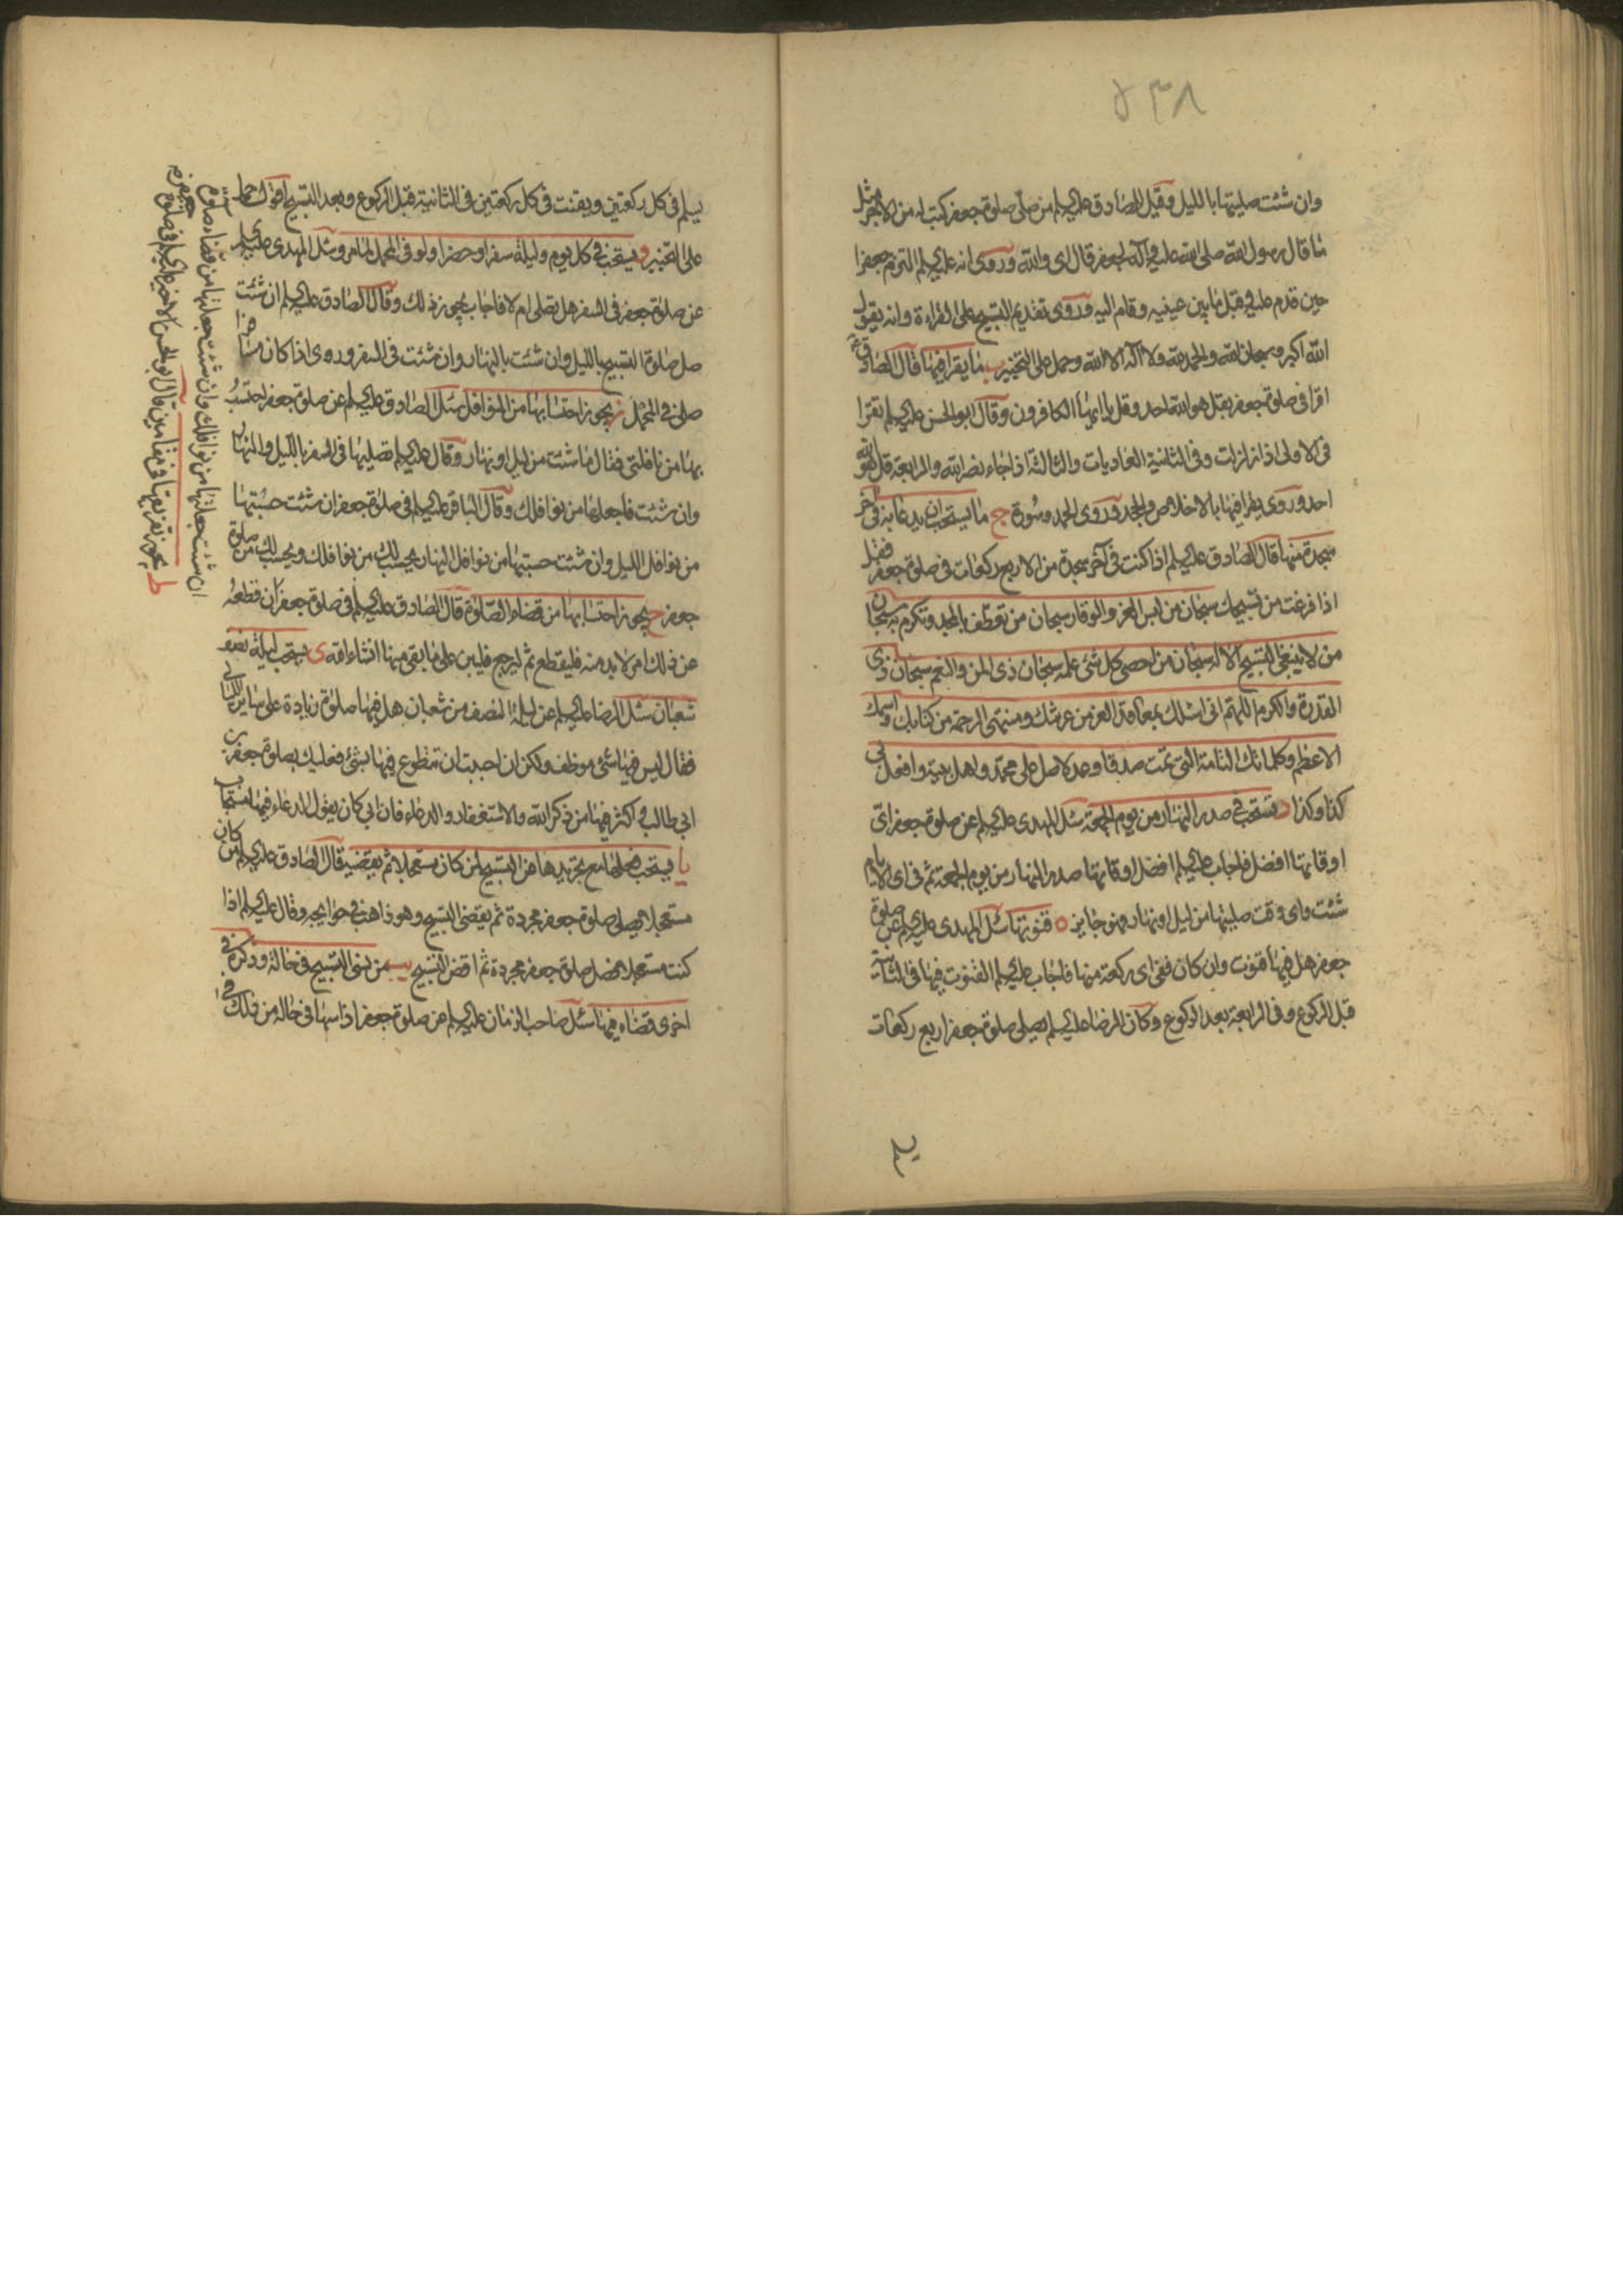 ٥٣٨
وان شئت صليتها بالليل وقيل للصادق عليه السلام من صلى صلوة جعفر كتب له من الاجر مثل
ما قال رسول الله صلى الله عليه وآله لجعفر قال اى والله وروى انه عليه السلم التزم جعفرا
حين قدم عليه وقبل ما بين عينيه وقام اليه وروى تقديم التسبيح على القراءة وانه يقول
الله اكبر وسبحان الله والحمد لله ولا اله الا الله وحمل على التخيير ب ما يقرا فيها قال الصادق
اقرا فى صلوة جعفر بقل هو الله احد وقل يا ايها الكافرون وقال ابو الحسن عليه السلم تقرا
فى الاولى اذا زلزلت وفى الثانية العاديات والثالثة اذا جاء نصر الله والرابعة قل هو الله
احد وروى يقرا فيها بالاخلاص والجحد وروى الحمد وسورة ج ما يستحب ان يدعا به فى آخر
سجدة منها قال الصادق عليه السلم اذا كنت فى آخر سجدة من الاربع ركعات فى صلوة جعفر فقل
اذا فرغت من تسبيحك سبحان من لبس العز والوقار سبحان من تعطف بالمجد وتكرم به سبحان
من لا ينبغى التسبيح الا له سبحان من احصى كل شئ علمه سبحان ذى المن والنعم سبحان ذى
القدرة والكرم اللهم انى اسئلك بمعاقد العز من عرشك ومنتهى الرحمة من كتابك واسمك
الاعظم وكلماتك التامة التى تمت صدقا وعدلا صل على محمد واهل بيته وافعل بى
كذا وكذا د تستحب فى صدر النهار من يوم الجمعة سئل المهدى عليه السلم عن صلوة جعفر اى
اوقاتها افضل فاجاب عليه السلم افضل اوقاتها صدر النهار من يوم الجمعة ثم فى اى الايام
شئت واى وقت صليتها من ليل او نهار فهو جايز ه قنوتها سئل المهدى عليه السلم عن صلوة
جعفر هل فيها قنوت وان كان ففى اى ركعة منها فاجاب عليه السلم القنوت فيها فى الثانية
قبل الركوع وفى الرابعة بعد الركوع وكان الرضا عليه السلم يصلى صلوة جعفر اربع ركعات
يسلم فى كل ركعتين ويقنت فى كل ركعتين فى الثانية قبل الركوع وبعد التسبيح اقول حمل
على التخيير و يستحب فى كل يوم وليلة سفرا وحضرا ولو فى المحمل لما مر وسئل المهدى عليه السلم
عن صلوة جعفر فى السفر هل تصلى ام لا فاجاب يجوز ذلك وقال الصادق عليه السلم ان شئت
صل صلوة التسبيح بالليل وان شئت بالنهار وان شئت فى السفر وروى اذا كان مسافرا
صلى فى المحمل ز يجوز احتسابها من النوافل سئل الصادق عليه السلم عن صلوة جعفر احتسب
بها من نافلتى فقال ما شئت من ليل او نهار وقال عليه السلم تصليها فى السفر بالليل والنهار
وان شئت فاجعلها من نوافلك وقال الباقر عليه السلم فى صلوة جعفر ان شئت حسبتها
من نوافل الليل وان شئت حسبتها من نوافل النهار يحسب لك من نوافلك ويحسب لك من صلوة
جعفر ح يجوز احتسابها من قضاء الصلوة قال الصادق عليه السلم فى صلوة جعفر ان قطعه
عن ذلك امر لا بد منه فليقطع ثم ليرجع فليبن على ما بقى منها انشاء الله ى يستحب ليلة نصف
شعبان سئل الرضا عليه السلم عن ليلة النصف من شعبان هل فيها صلوة زيادة على ساير الليالى
فقال ليس فيها شئ موظف ولكن ان احببت ان تتطوع فيها بشئ فعليك بصلوة جعفر بن
ابى طالب واكثر فيها من ذكر الله والاستغفار والدعاء فان ابى كان يقول الدعاء فيها مستجاب
يا يستحب فعلها مع تجريدها من التسبيح لمن كان مستعجلا ثم يقضيه قال الصادق عليه السلم من كان
مستعجلا يصلى صلوة جعفر مجردة ثم يقضى التسبيح وهو ذاهب فى حوايجه وقال عليه السلم اذا
كنت مستعجلا فصل صلوة جعفر مجردة ثم اقض التسبيح يب من نسى التسبيح فى حالة وذكره فى
اخرى قضاه فيها سئل صاحب الزمان عليه السلم عن صلوة جعفر اذا سها فى حالة من ذلك
ان شئت جعلتها من نوافلك وان شئت جعلتها من قضاء صلوة
ط يجوز تفريقها فى مقامين قال ابو الحسن الاخير عليه السلم فى صلوة جعفر